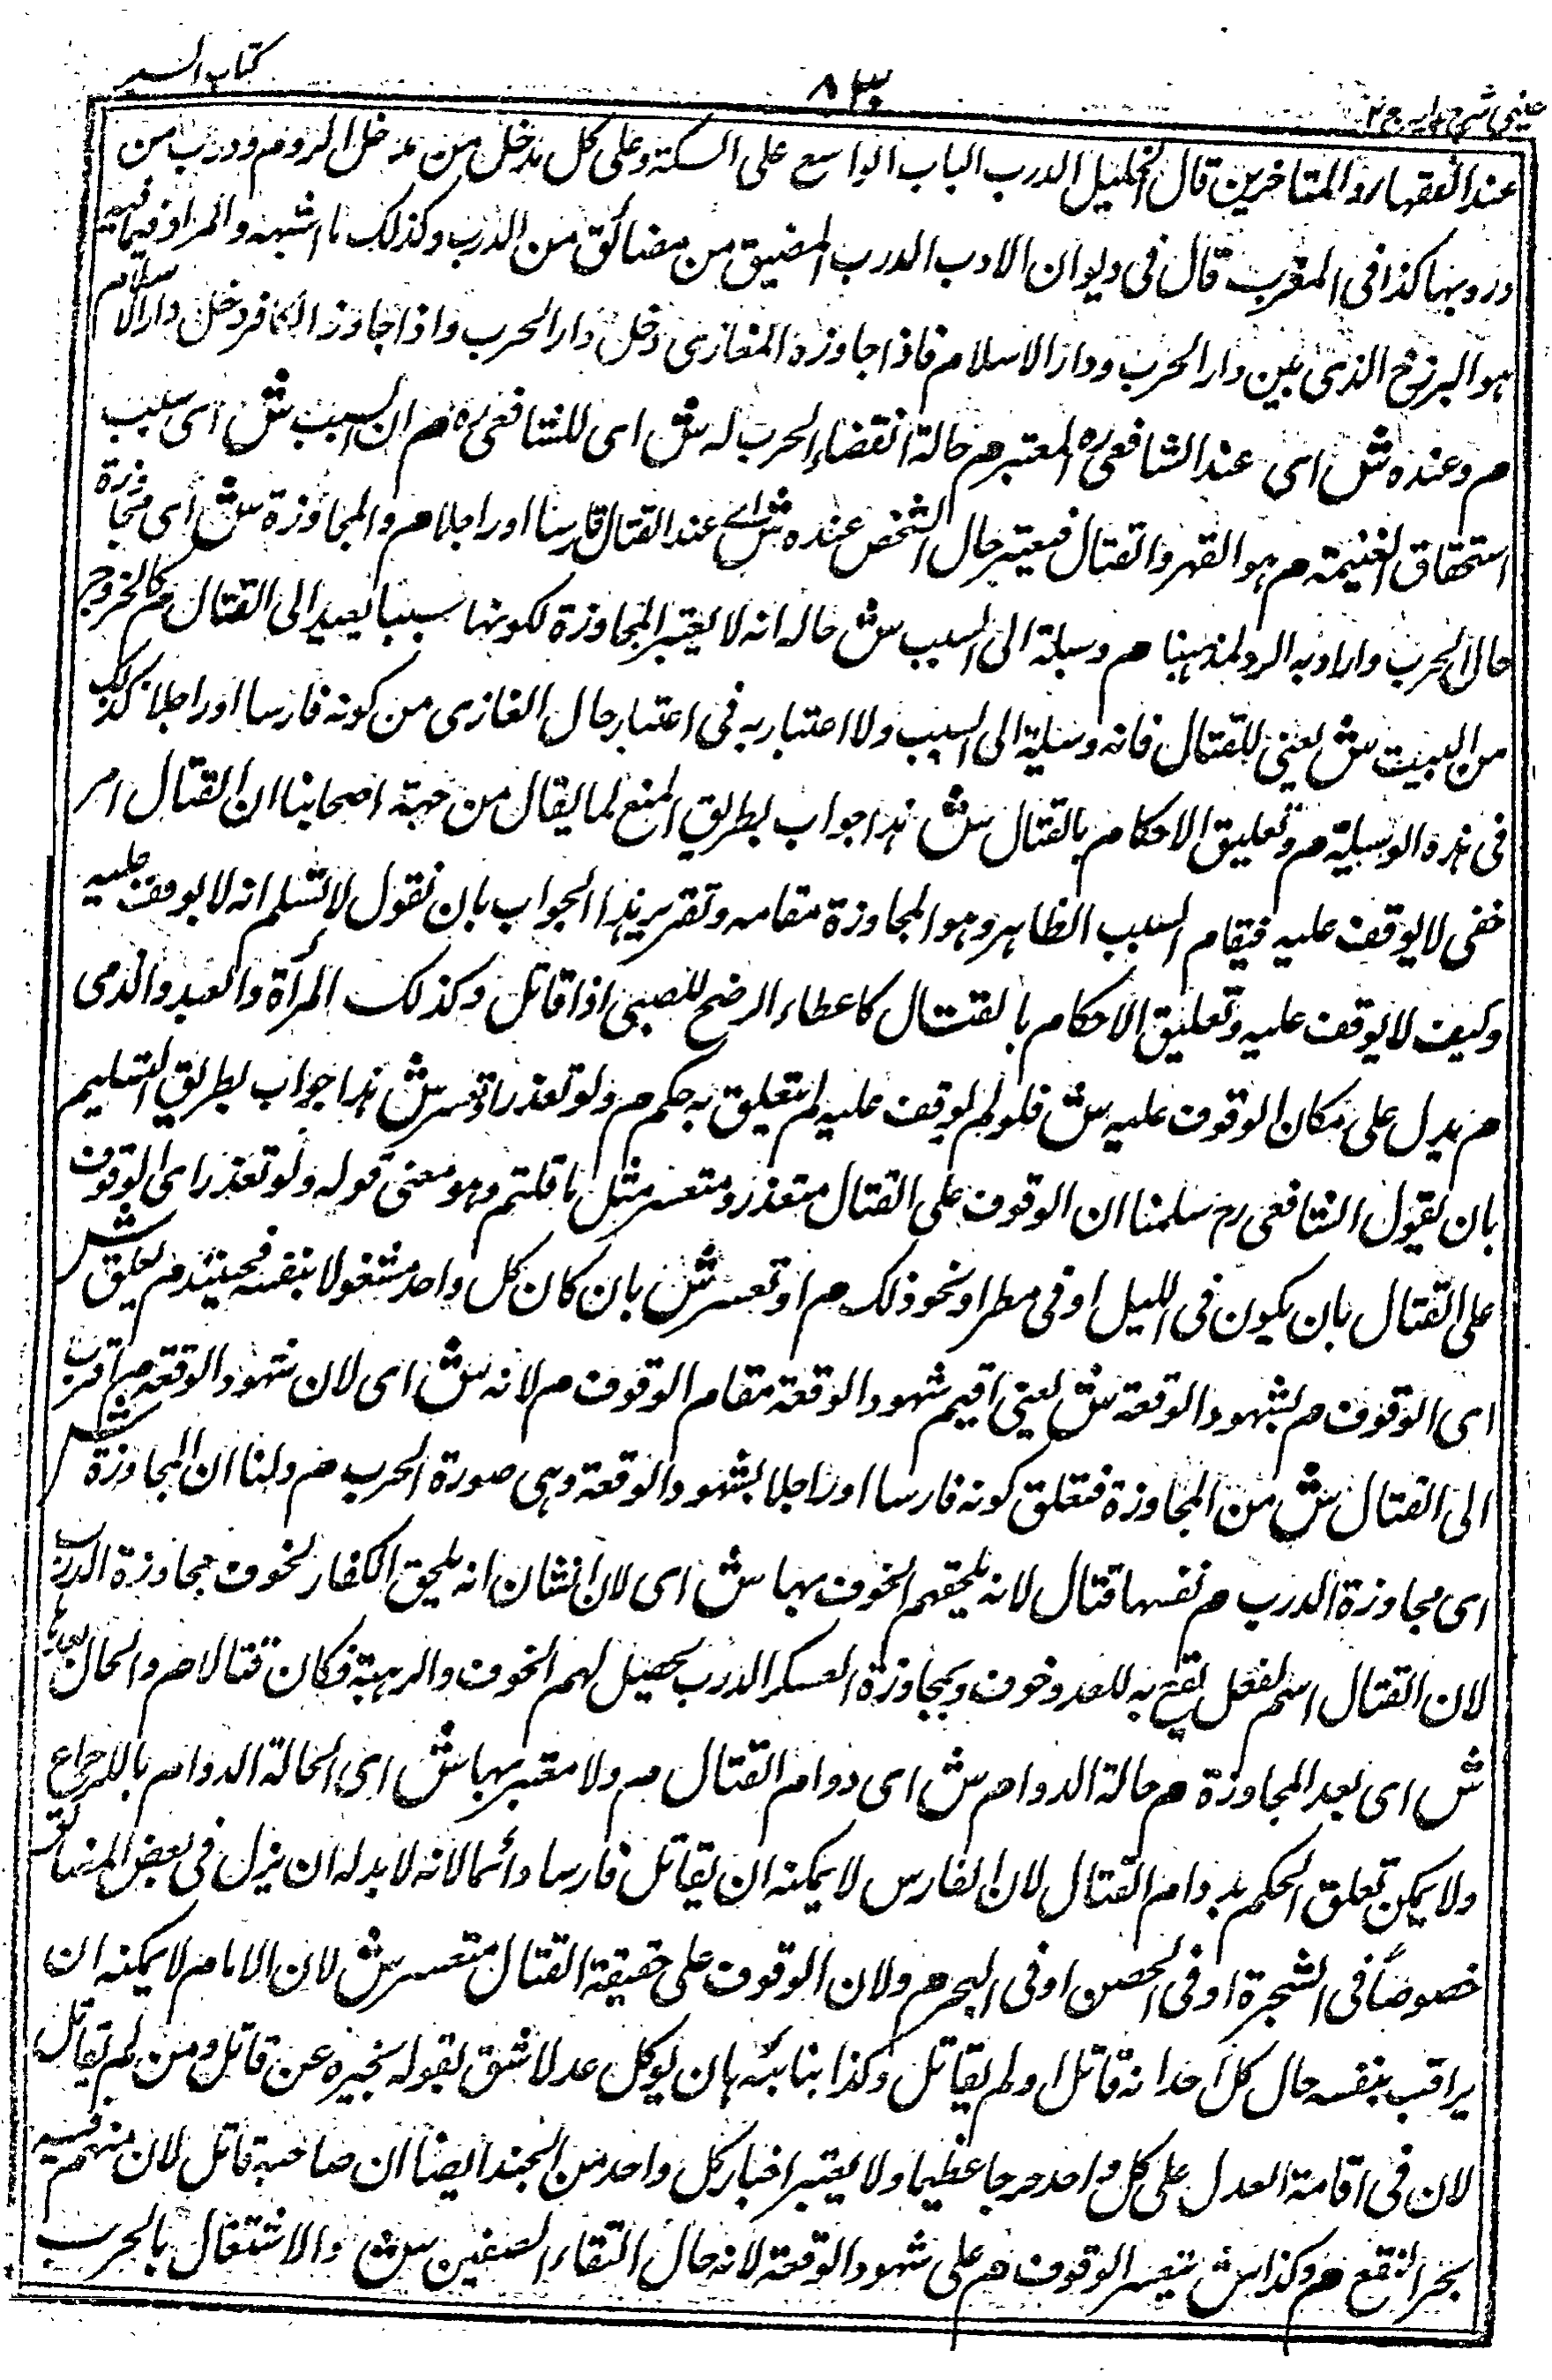 كتاب السير
٨٣٠
عينى شرح هدايه ج ٢
عند الفقهاء والمتاخرين قال الخليل الدرب الباب الواسع على السكة وعلى كل مدخل من مدخل الروم ودرب من
دروبها كذا فى المغرب قال فى ديوان الادب الدرب المضيق من مضائق من الدرب وكذلك ما اشبهه والمراد فيما فيه
هو البرزخ الذى بين دار الحرب ودار الاسلام فاذا جاوزه المغازى دخل دار الحرب واذا جاوز الكافر دخل دار الاسلام
م وعنده ش اى عند الشافعى ره المعتبر م حالة انقضاء الحرب له ش اى للشافعى ره م ان السبب ش اى سبب
استحقاق الغنيمة م هو القهر والقتال فيعتبر حال الشخص عنده ش اے عند القتال فارسا او راجلا م والمجاوزة ش اى مجاوزة
حال الحرب واراد به الرد لمذهبنا م وسيلة الى السبب ش حاله انه لا يعتبر المجاوزة لكونها سببا بعيدا الى القتال م كالخروج
من البيت ش يعنى للقتال فانه وسيلة الى السبب ولا اعتبار به فى اعتبار حال الغازى من كونه فارسا او راجلا كذلك
فى هذه الوسيلة م وتعليق الاحكام بالقتال ش هذا جواب بطريق المنع لما يقال من جهة اصحابنا ان القتال امر
خفى لا يوقف عليه فيقام السبب الظاهر وهو المجاوزة مقامه وتقرير هذا الجواب بان نقول لا نسلم انه لا يوقف عليه
وكيف لا يوقف عليه وتعليق الاحكام بالقتال كاعطاء الرضخ للصبى اذا قاتل وكذلك المرأة والعبد والذمى
م يدل على مكان الوقوف عليه ش فلو لم يوقف عليه لم يتعلق به حكم م ولو تعذر او تعسر ش هذا جواب بطريق التسليم
بان يقول الشافعى رح سلمنا ان الوقوف على القتال متعذر ومتعسر مثل ما قلتم وهو معنى قوله ولو تعذر اى الوقوف
على القتال بان يكون فى الليل او فى مطر او نحو ذلك م او تعسر ش بان كان كل واحد مشغولا بنفسه فحينئذ م يعلق ش
اى الوقوف م بشهود الوقعة ش يعنى اقيم شهود الوقعة مقام الوقوف م لانه ش اى لان شهود الوقعة م اقرب
الى القتال ش من المجاوزة فتعلق كونه فارسا او راجلا بشهود الوقعة وهى صورة الحرب م ولنا ان المجاوزة ش
اى مجاوزة الدرب م نفسها قتال لانه يلحقهم الخوف بها ش اى لان الشان انه يلحق الكفار الخوف بمجاوزة الدرب
لان القتال اسم لفعل يقع به للعدو خوف وبمجاوزة العسكر الدرب يحصل لهم الخوف والرهبة فكان قتالا م والحال بعدها
ش اى بعد المجاوزة م حالة الدوام ش اى دوام القتال م ولا معتبر بها ش اى الحالة الدوام بالاجماع
ولا يمكن تعلق الحكم بدوام القتال لان الفارس لا يمكنه ان يقاتل فارسا دائما لانه لا بد له ان ينزل فى بعض المضائق
خصوصا فى الشجرة او فى الحصن او فى البحر م ولان الوقوف على حقيقة القتال متعسر ش لان الامام لا يمكنه ان
يراقب بنفسه حال كل احد انه قاتل او لم يقاتل وكذا بنائبه بان يوكل عدلا شق بقوله يخبره عن قاتل ومن لم يقاتل
لان فى اقامة العدل على كل واحد حرجا عظيما ولا يعتبر اخبار كل واحد من الجند ايضا ان صاحبه قاتل لان منهم فيه
بجر النفع م وكذا ش يتعسر الوقوف م على شهود الوقعة لانه حال التقاء الصفين ش والاشتغال بالحرب